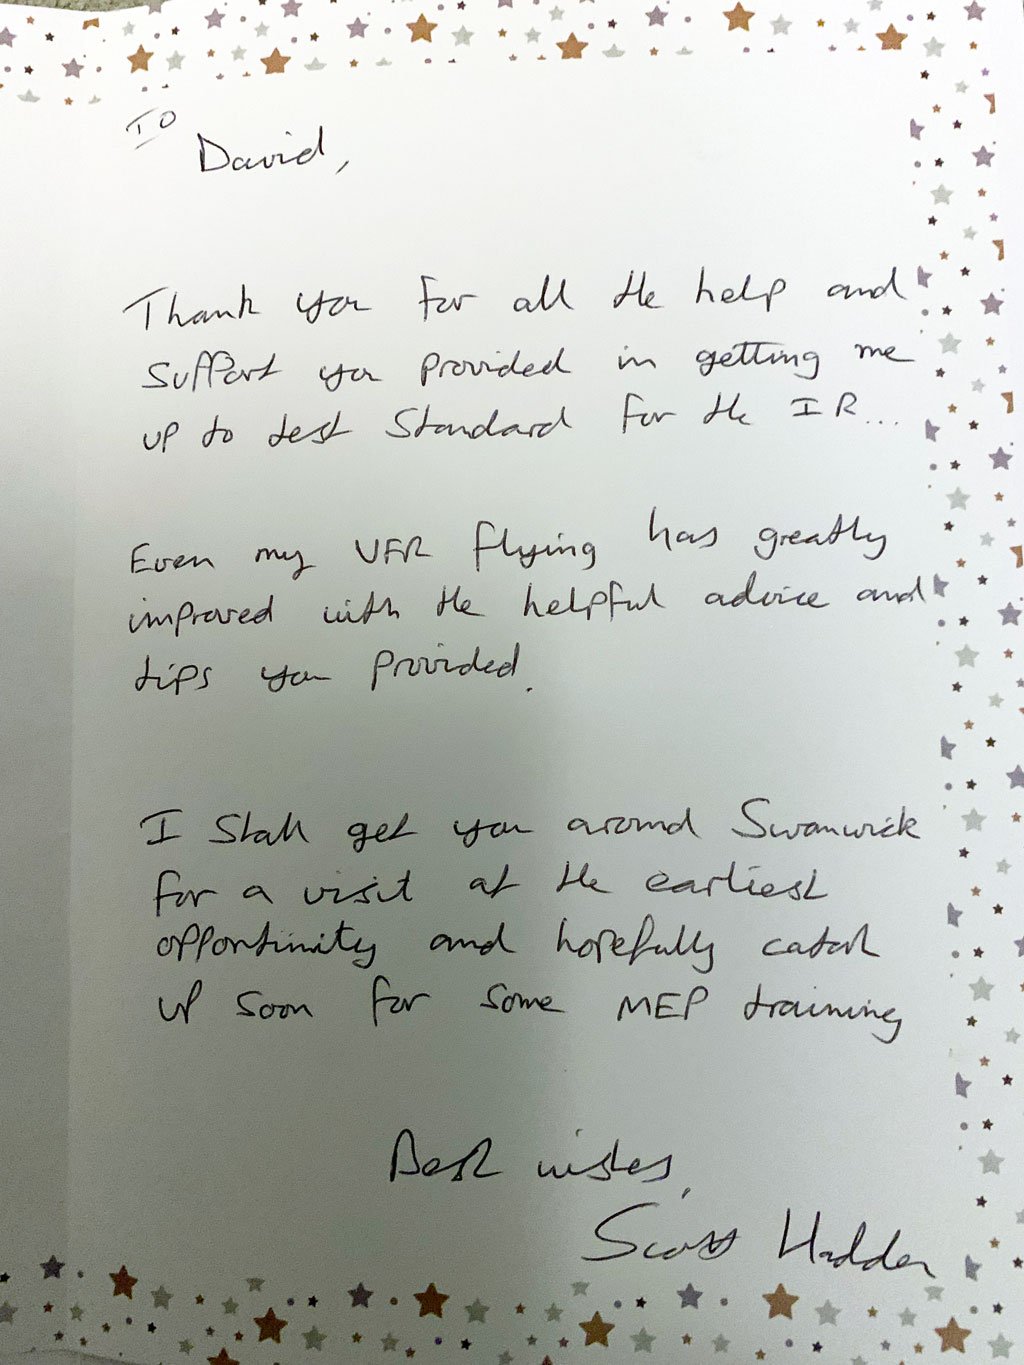 To
David,
Thank you for all the help and
support you provided in getting me
up to test standard for the IR...
Even my VFR flying has greatly
improved with the helpful advice and
tips you provided.
I shall get you around Swanwick
for a visit at the earliest
opportunity and hopefully catch
up soon for some MEP training
Best wishes,
Scott Hadden